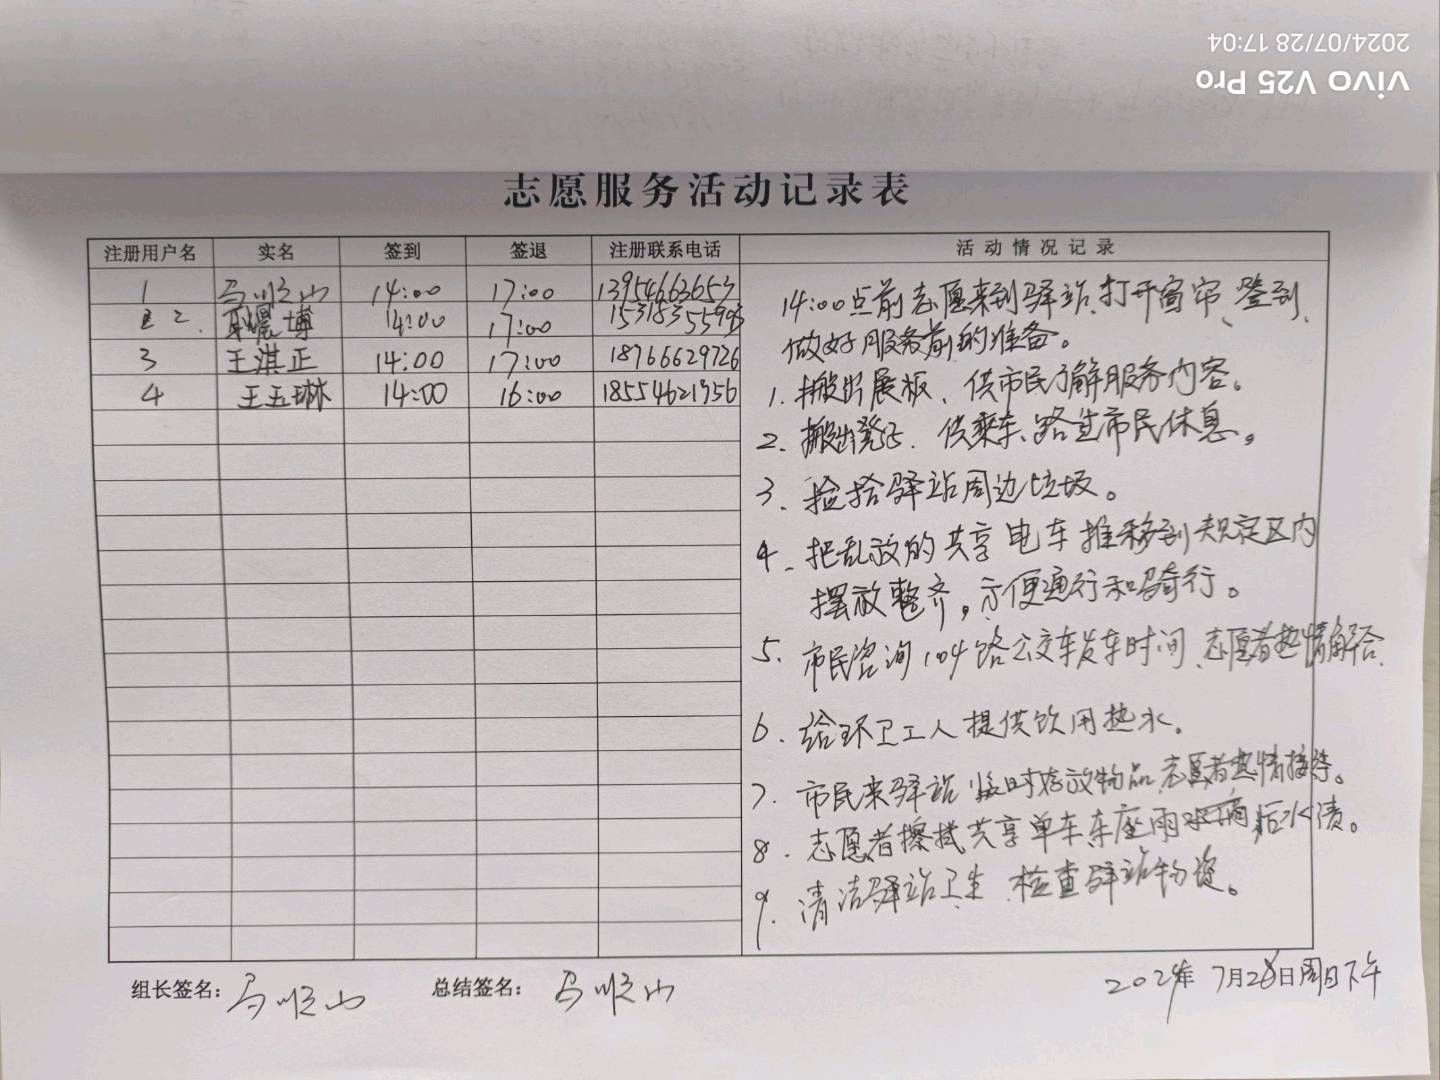 vivo V25 Pro
2024/07/28 17:04
志愿服务活动记录表
注册用户名 实名 签到 签退 注册联系电话 活动情况记录
1 马顺山 14:00 17:00 13954663653
2. 博 14:00 17:00 15318355596
3 王淇正 14:00 17:00 18766629726
4 王玉琳 14:00 16:00 18554621956
14:00点前志愿来到驿站、打开窗帘、签到、
做好服务前的准备。
1. 搬出展板、供市民了解服务内容。
2. 搬出凳子、供乘车、路过市民休息。
3. 捡拾驿站周边垃圾。
4. 把乱放的共享电车推移到规定区内
摆放整齐,方便通行和骑行。
5. 市民咨询104路公交车发车时间、志愿者热情解答.
6. 给环卫工人提供饮用热水。
7. 市民来驿站临时存放物品、志愿者热情接待。
8. 志愿者擦拭共享单车车座雨后水渍。
9. 清洁驿站卫生、检查驿站物资。
组长签名: 马顺山 总结签名: 马顺山
2024年 7月28日周日下午